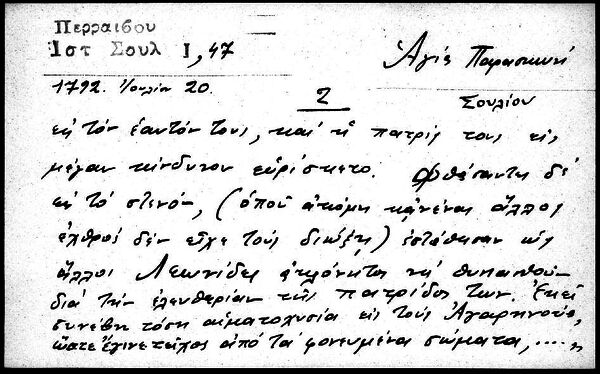 Περραιβου
Ιστ Σουλ Ι, 47
Ἁγία Παρασκευή
1792. Ἰουλίου 20.
2
Σουλίου
εἰς τὸν ἑαυτόν τους, καὶ ἡ πατρίς τους εἰς
μέγαν κίνδυνον εὑρίσκετο. Φθάσαντες δὲ
εἰς τὸ στενόν, (ὁποῦ ἀκόμη κᾀνένας ἄλλος
ἐχθρὸς δὲν εἶχε τοὺς διώξῃ) ἐστάθησαν ὡς
ἄλλοι Λεωνίδες ἀποφασισμένοι νὰ θυσιασθοῦν
διὰ τὴν ἐλευθερίαν τῆς πατρίδος των. Ἐκεῖ
συνέβη τόση αἱματοχυσία εἰς τοὺς Ἀγαρηνούς,
ὥστε ἔγινε τεῖχος ἀπὸ τὰ φονευμένα σώματα,....,